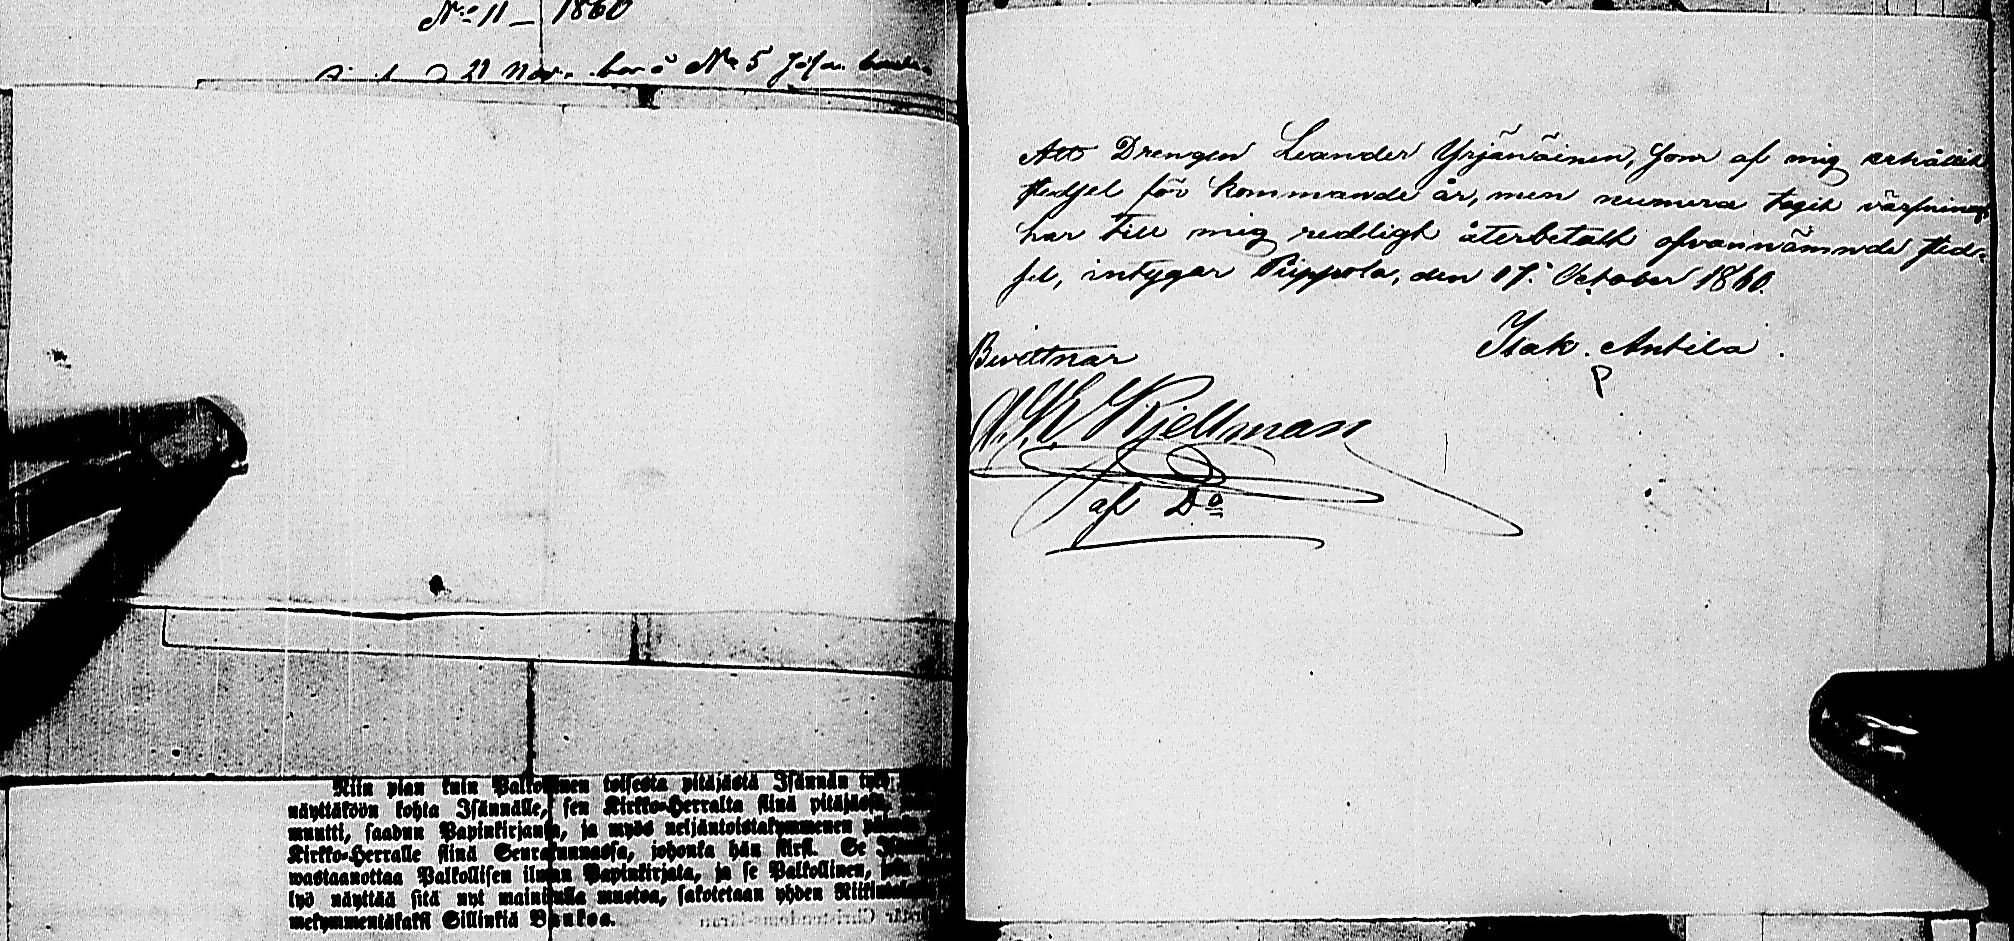 No: 11 – 1860
21 Nov. No 5
Att Drengen Leander Yrjänäinen, som af mig erhållit
stedsel för kommande år, men numera tagit värfning,
har till mig redligt återbetalt ofvannämnde sted-
sel, intygar Piippola, den 17. October 1860.
Isak. Antila.
Bevittnar
Kjellman
af Do
Niin pian kuin Palkollinen toisesta pitäjästä Isännän
näyttäköön kohta Isännälle, sen Kirkko-Herralta siinä pitäjässä,
muutti, saadun Papinkirjansa, ja myös neljäntoistakymmenen
Kirkko-Herralle siinä Seurakunnassa, johonka hän siirt. Se
wastaanottaa Palkollisen ilman Papinkirjata, ja se Palkollinen,
lyö näyttää sitä nyt mainitulla muotoa, sakotetaan yhden
mekymmentäkaksi Sillinkiä Bankoa.